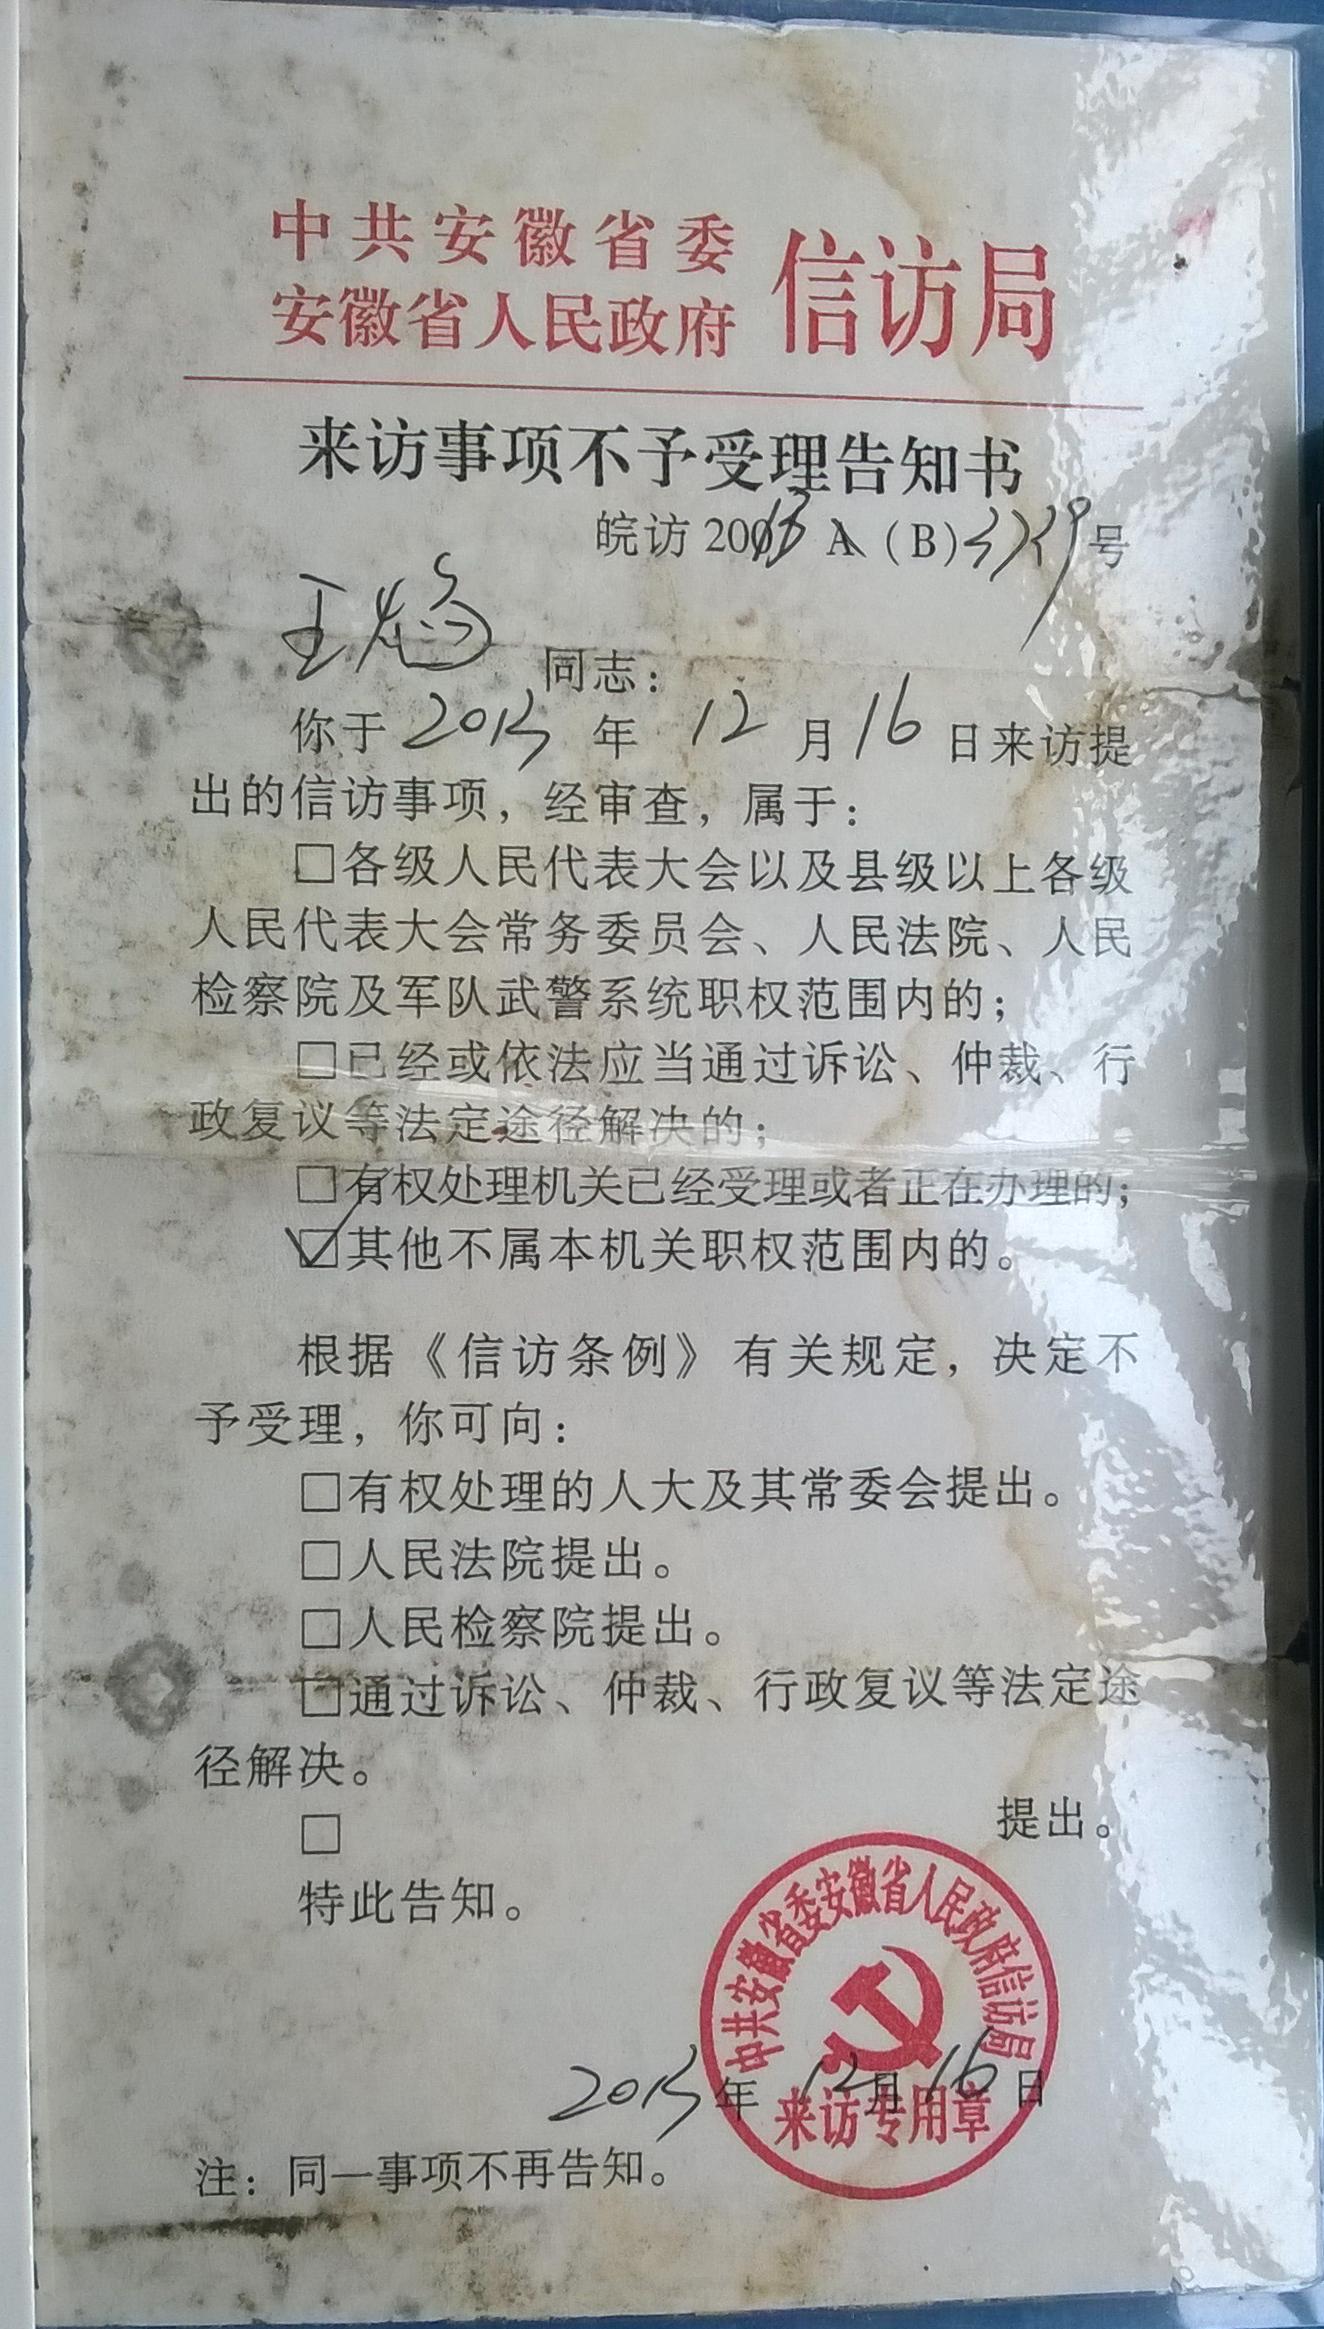 中共安徽省委
安徽省人民政府
信访局
来访事项不予受理告知书
皖访 2013 A (B) 号
王 同志：
你于 2013 年 12 月 16 日来访提
出的信访事项，经审查，属于：
□各级人民代表大会以及县级以上各级
人民代表大会常务委员会、人民法院、人民
检察院及军队武警系统职权范围内的；
□已经或依法应当通过诉讼、仲裁、行
政复议等法定途径解决的；
□有权处理机关已经受理或者正在办理的；
☑其他不属本机关职权范围内的。
根据《信访条例》有关规定，决定不
予受理，你可向：
□有权处理的人大及其常委会提出。
□人民法院提出。
□人民检察院提出。
□通过诉讼、仲裁、行政复议等法定途
径解决。
□ 提出。
特此告知。
中共安徽省委安徽省人民政府信访局
来访专用章
2013 年 12 月 16 日
注：同一事项不再告知。